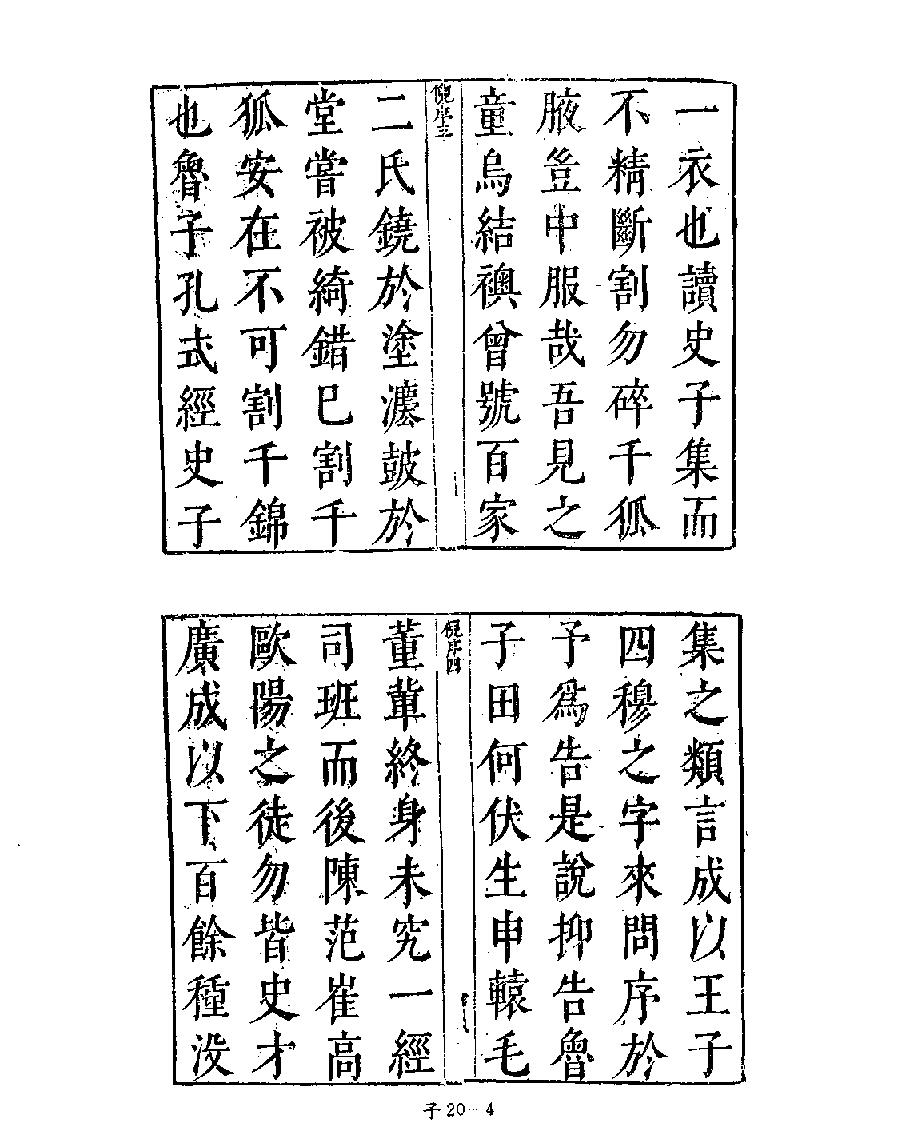 一衣也讀史子集而
不精斷割勿碎千狐
腋豈中服哉吾見之
童烏結襖曾號百家
倪序三
二氏鐃於塗灋皷於
堂嘗被綺錯已割千
狐安在不可割千錦
也魯子孔式經史子
集之類言成以王子
四穆之字來問序於
予爲告是說抑告魯
子田何伏生申轅毛
倪序四
董軰終身未究一經
司班而後陳范崔高
歐陽之徒勿皆史才
廣成以下百餘種沒
子20—4